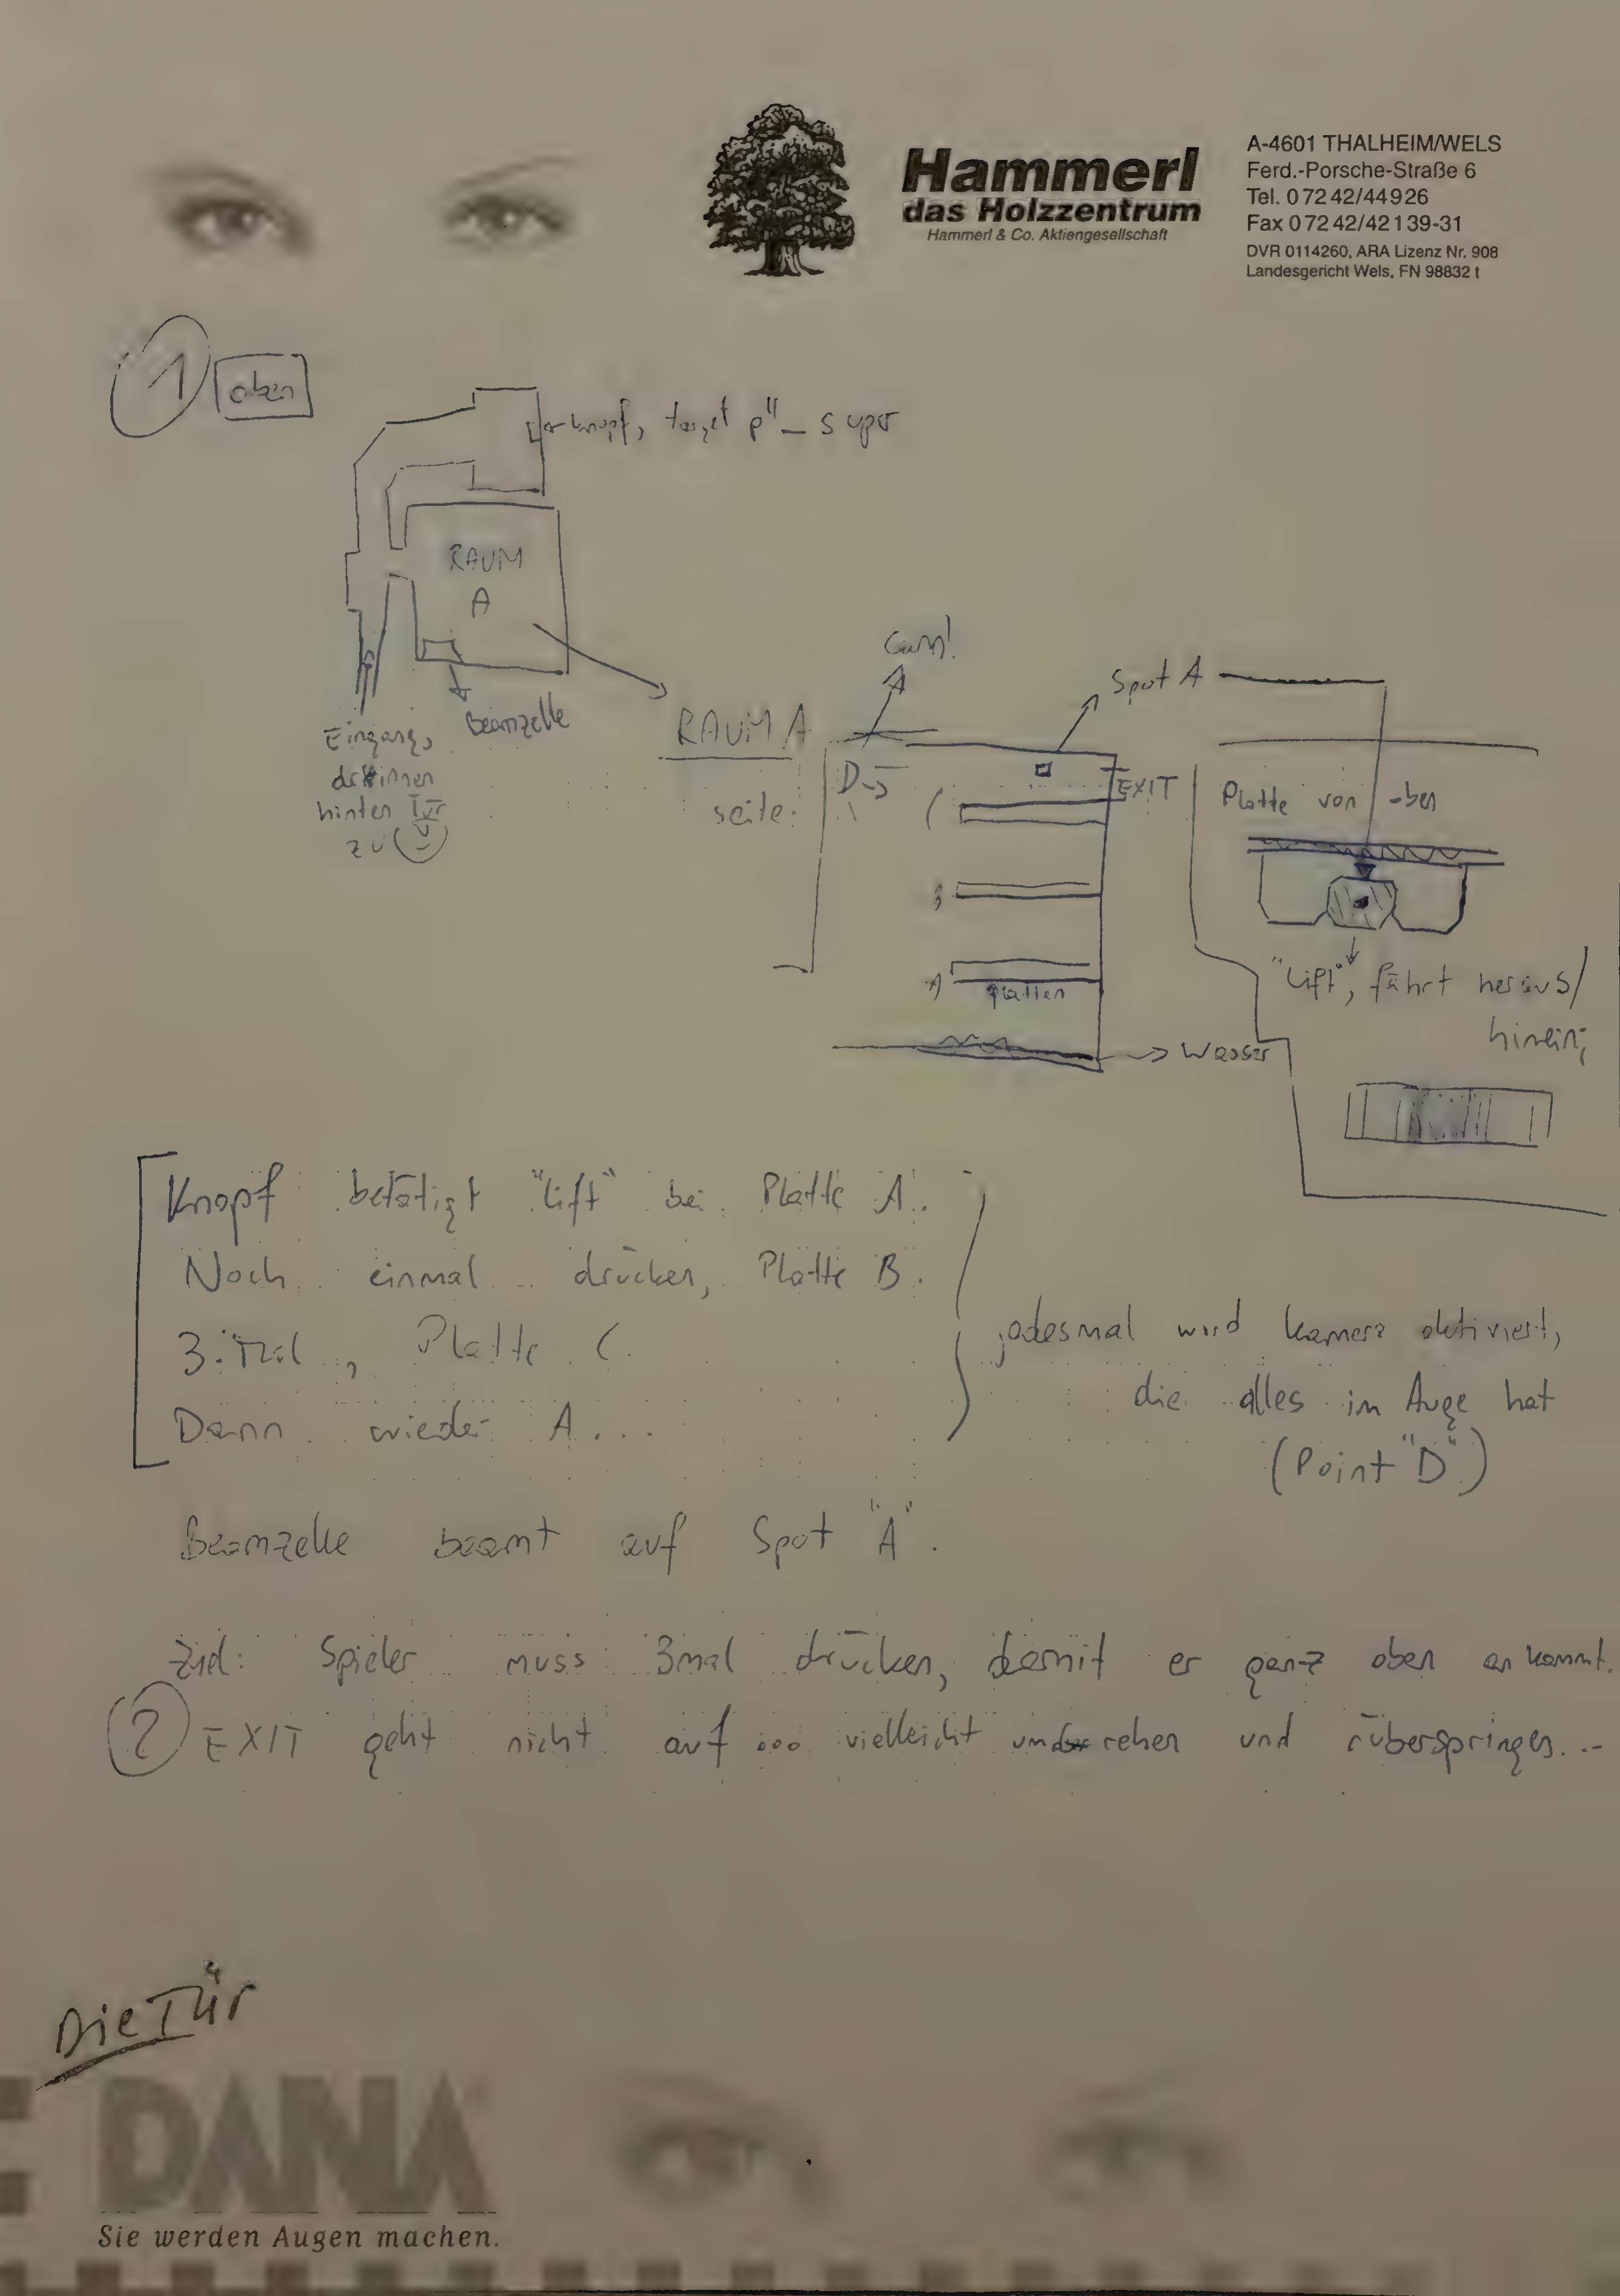 Hammerl
das Holzzentrum
Hammerl & Co. Aktiengesellschaft
A-4601 THALHEIM/WELS
Ferd.-Porsche-Straße 6
Tel. 0 72 42/44 9 26
Fax 0 72 42/42 1 39-31
DVR 0114260, ARA Lizenz Nr. 908
Landesgericht Wels, FN 98832 t
1
oben
Knopf, target
RAUM
A
Beamzelle
Eingang,
drinnen
hinten Tür
zu
RAUM A
seite:
Cam!
D
Spot A
EXIT
C
B
A
Platten
Wasser
Platte von oben
"Lift", fährt heraus/
hinein;
Knopf betätigt "Lift" bei Platte A.
Noch einmal drücken, Platte B.
3. Mal, Platte C.
Dann wieder A...
jadesmal wird kamera aktiviert,
die alles im Auge hat
(Point "D")
Beamzelle beamt auf Spot "A".
Ziel: Spieler muss 3mal drücken, damit er ganz oben ankommt.
2 EXIT geht nicht auf ... vielleicht umdrehen und rüberspringen...
Die Tür
DANA
Sie werden Augen machen.